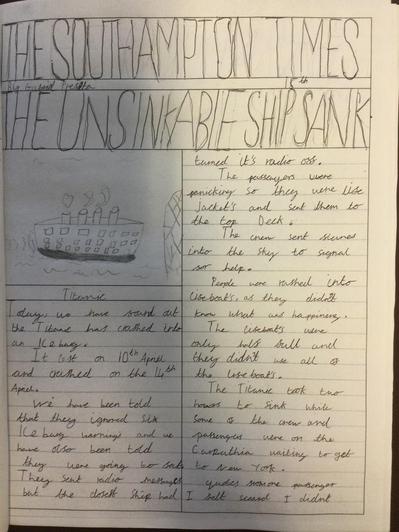 THE SOUTHAMPTON TIMES
By
15th
THE UNSINKABLE SHIP SANK
Titanic
Today, we have found out
the Titanic has crashed into
an Iceburg.
It left on 10th April
and crashed on the 14th
April.
We have been told
that they ignored six
Ice burg warnings and we
have also been told
they were going too fast.
They sent radio messages
but the closest ship had
turned it's radio off.
The passengers were
panicking so they were life
Jackets and sent them to
the top Deck.
The crew sent
into the sky to signal
for help.
People were rushed into
lifeboats, as they didnt
know what was happening.
The lifeboats were
only half full and
they didn't use all of
the lifeboats.
The Titanic took two
hours to sink while
some of the crew and
passengers were on the
Carpathia waiting to get
to New York.
quotes someone passenger
I felt scared I didnt